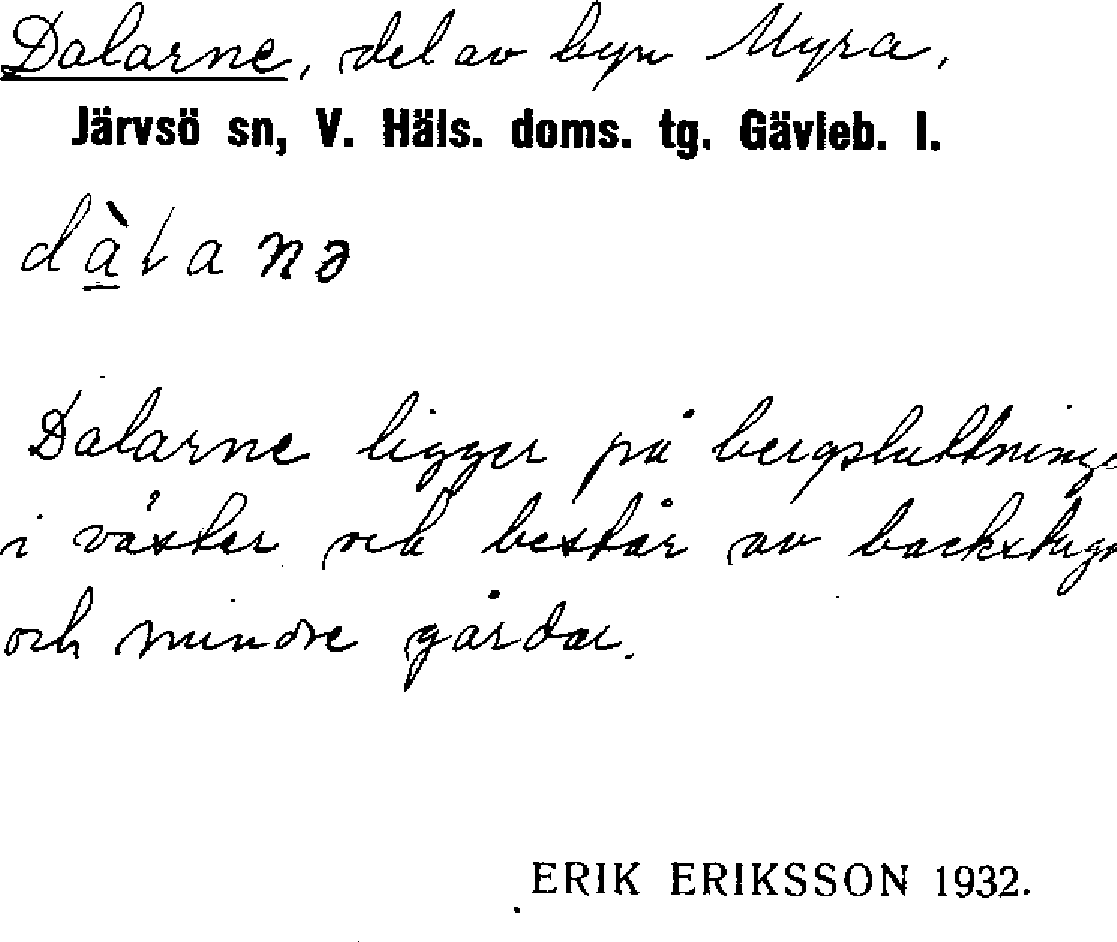 Dalarne, del av byn Myra.
Järvsö sn, V. Häls. doms. tg. Gävleb. l.
dà̱lanə
Dalarne ligger på bergsluttninge
i väster och består av backstugo
och mindre gårdar.
ERIK ERIKSSON 1932.